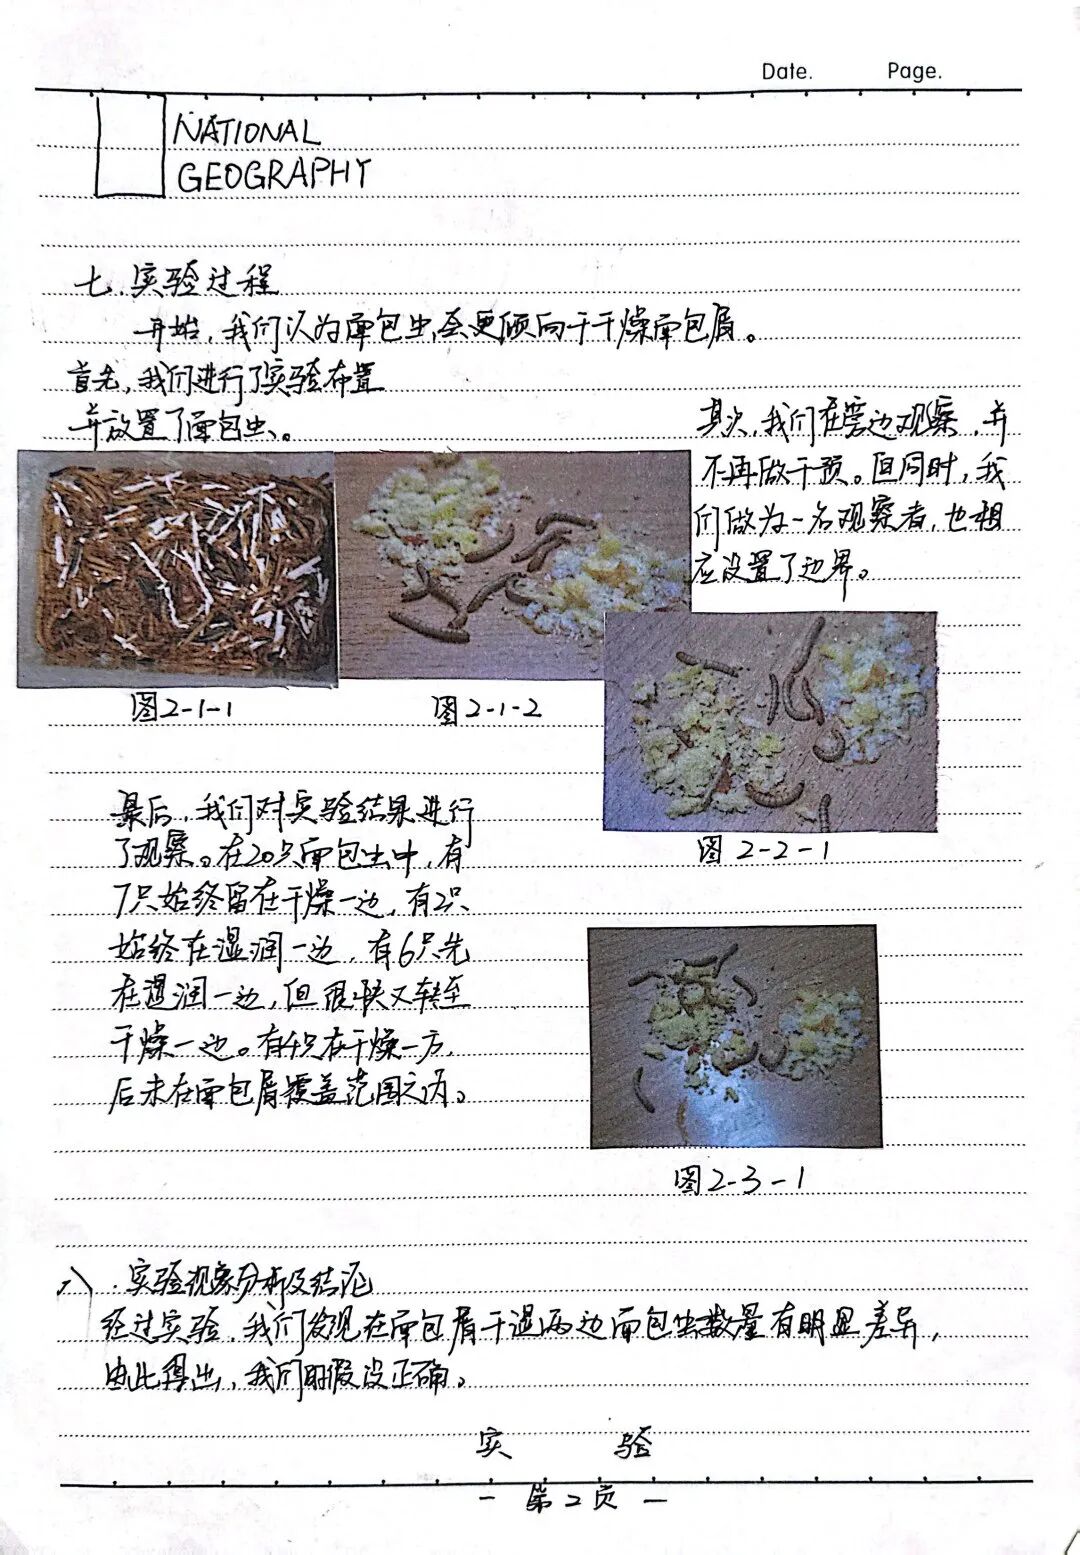 Date. Page.
NATIONAL
GEOGRAPHY
七.实验过程
开始,我们认为面包虫会更倾向于干燥面包屑。
首先,我们进行了实验布置
并放置了面包虫。
其次,我们在旁边观察,并
不再做干预。但同时,我
们做为一名观察者,也相
应设置了边界。
图2-1-1
图2-1-2
图2-2-1
最后,我们对实验结果进行
了观察。在20只面包虫中,有
7只始终留在干燥一边,有2只
始终在湿润一边,有6只先
在湿润一边,但很快又转至
干燥一边。有4只在干燥一方,
后未在面包屑覆盖范围之内。
图2-3-1
八.实验现象分析及结论
经过实验,我们发现在面包屑干湿两边面包虫数量有明显差异,
由此得出,我们的假设正确。
实 验
- 第2页 -